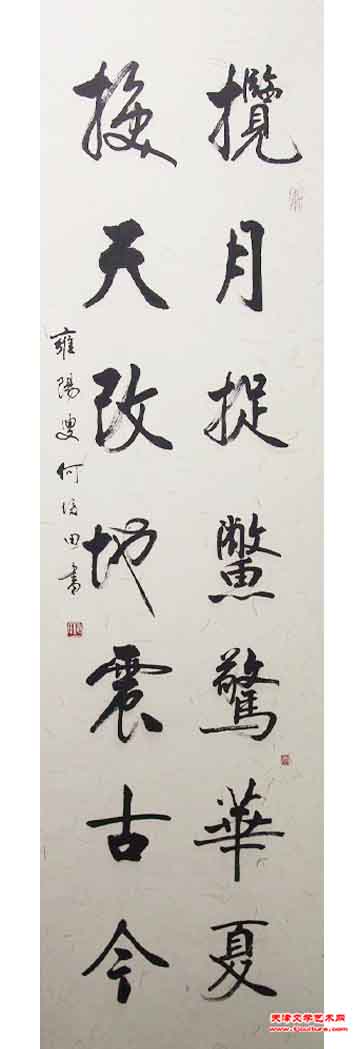 攬月捉鱉驚華夏
換天改地震古今
雍陽叟何田書
天津文学艺术网
www.tjculture.com